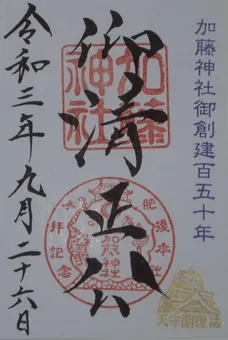 加藤神社御創建百五十年
加藤神社
仰清正公
加藤神社
拝記念
令和三年九月二十六日
天守閣復活